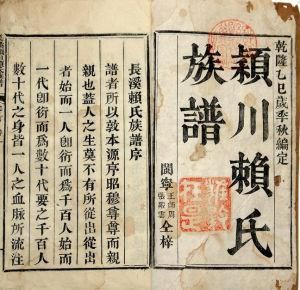 乾隆乙巳歲季秋編定
潁川賴氏
族譜
閩寧
仝梓
長溪賴氏族譜序
譜者所以敦本源序昭穆尊尊而親
親也蓋人之生莫不有所從出從出
者始而一人卽衍而爲千百人始而
一代卽衍而爲數十代要之千百人
數十代之身皆一人之血脈所流注